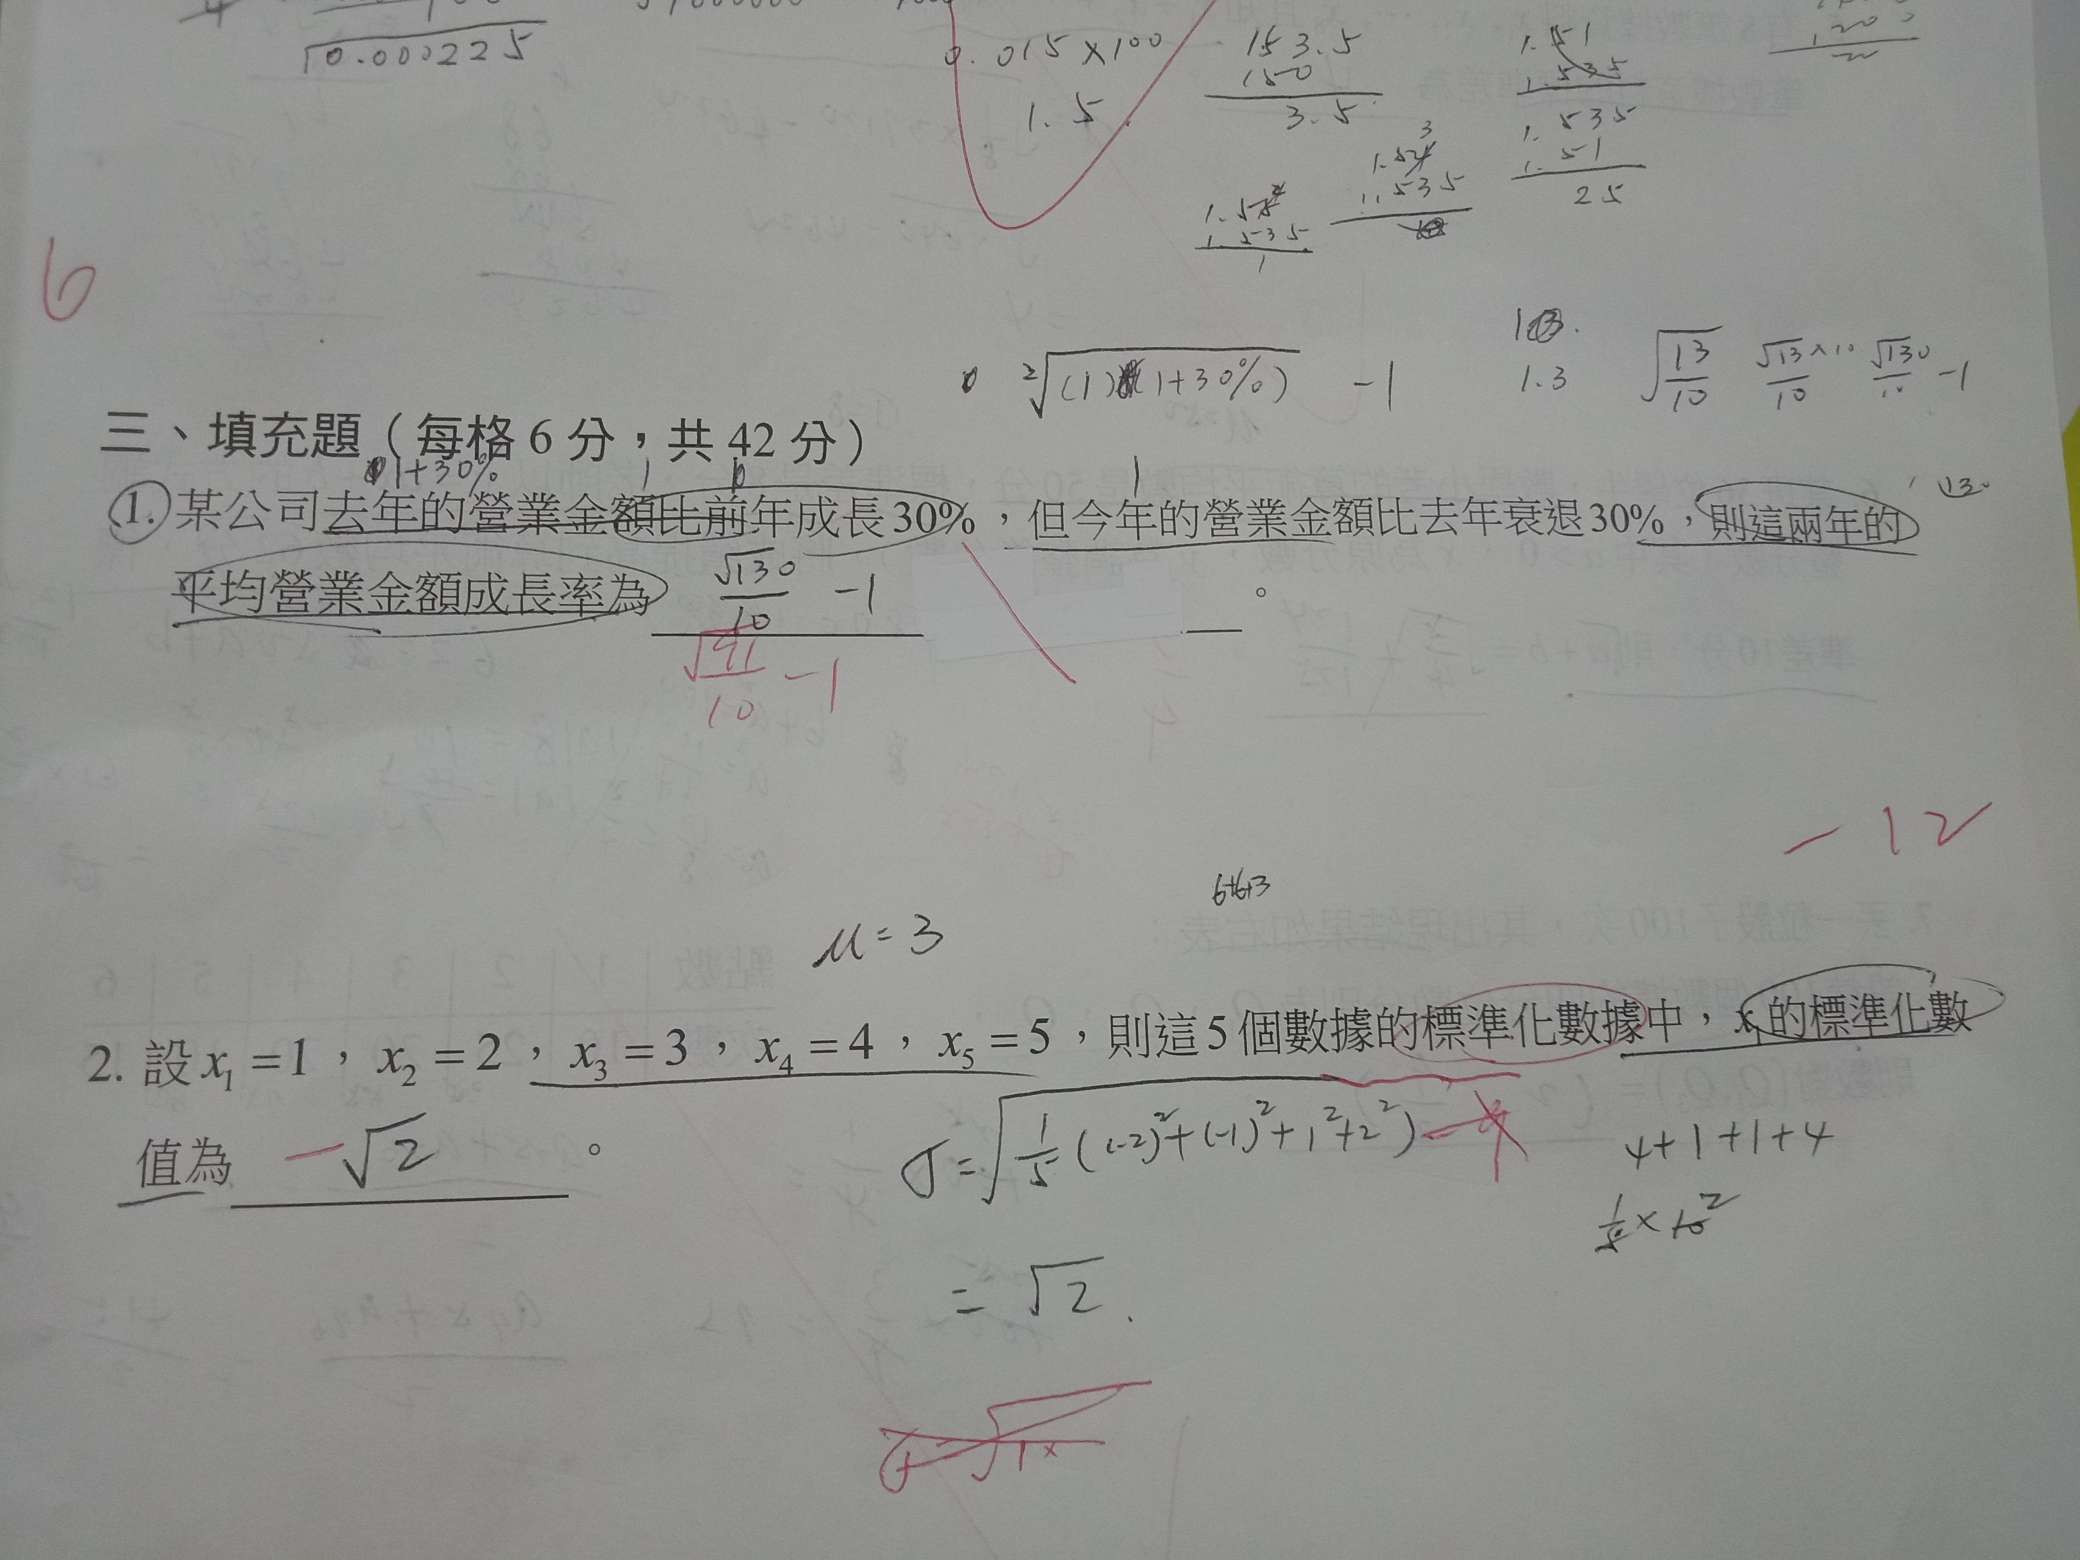 √0.000225
0.015×100
1.5
153.5
150
3.5
1.51
1.535
1.535
1.51
25
1.535
1
1.535
6
²√(1)(1+30%) -1
1.3
√13/10 √13×10/10 √130/10 -1
三、填充題（每格 6 分，共 42 分）
1+30% 1 1
1. 某公司去年的營業金額比前年成長30%，但今年的營業金額比去年衰退30%，則這兩年的
平均營業金額成長率為 √130/10 -1 。
√91/10 -1
-12
6+6+3
μ=3
2. 設 x₁=1， x₂=2， x₃=3， x₄=4， x₅=5，則這5個數據的標準化數據中，x₁的標準化數
值為 -√2 。
σ=√1/5((-2)²+(-1)²+1²+2²)
4+1+1+4
1/5×10 2
=√2.